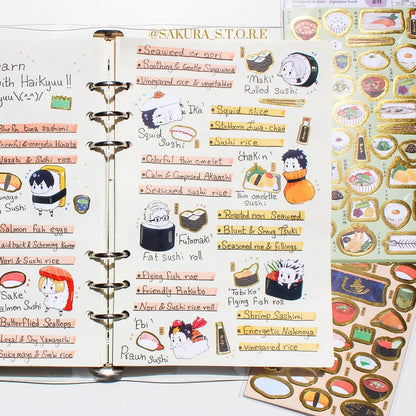 @SAKURA_S.T.ORE
Learn
with Haikyuu!!
tuna sashimi
energetic Hinata
Wasabi & Sushi rice
Sushi
Salmon fish eggs
Laid back & Scheming Kuroo
Nori & Sushi rice
'Sake'
Salmon Sushi
Butterflied Scallops
Loyal & Shy Yamaguchi
Spicy mayo & Sushi rice
Seaweed or nori
Soothing & Gentle Sugawara
Vinegared rice & vegetables
'Ika'
Squid
Sushi
Colorful thin omelet
Calm & Composed Akaashi
Seasoned sushi rice
'Futomaki'
Fat sushi roll
Flying fish roe
Friendly Bokuto
Nori & Sushi rice roll
'Ebi'
Prawn Sushi
'Maki'
Rolled Sushi
Squid slice
Stubborn Iwa-chan
Sushi rice
'Chakin'
Thin omelette
Sushi
Roasted nori Seaweed
Blunt & Smug Tsuki
Seasoned rice & fillings
'Tobiko'
Flying Fish roll
Shrimp Sashimi
Energetic Nishinoya
vinegared rice
Designed stickers - Japanese Food